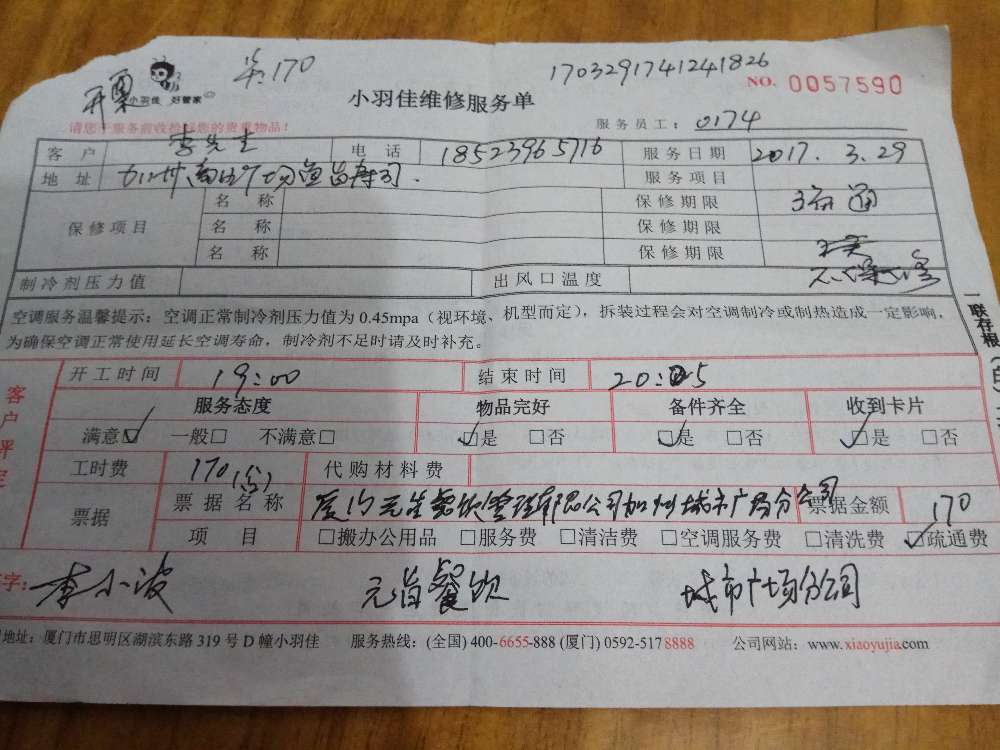 开票 吴170 1703291741241826
小羽佳 好管家 小羽佳维修服务单 NO. 0057590
请您于服务前收检好您的贵重物品! 服务员工: 0174
客户 李先生 电话 18523965716 服务日期 2017.3.29
地址 服务项目 疏通
保修项目 名称 保修期限
名称 保修期限
名称 保修期限
制冷剂压力值 出风口温度 不保修
空调服务温馨提示:空调正常制冷剂压力值为0.45mpa(视环境、机型而定),拆装过程会对空调制冷或制热造成一定影响,
为确保空调正常使用延长空调寿命,制冷剂不足时请及时补充。
一联存根(白)
客户评定
开工时间 19:00 结束时间 20:05
服务态度 物品完好 备件齐全 收到卡片
满意☑ 一般□ 不满意□ ☑是 □否 ☑是 □否 ☑是 □否
工时费 170 代购材料费
票据 票据名称 厦门元生餐饮管理有限公司加州城市广场分公司 票据金额 170
项目 □搬办公用品 □服务费 □清洁费 □空调服务费 □清洗费 ☑疏通费
字: 李小波 餐饮 城市广场分公司
地址:厦门市思明区湖滨东路319号D幢小羽佳 服务热线:(全国)400-6655-888(厦门)0592-5178888 公司网站:www.xiaoyujia.com